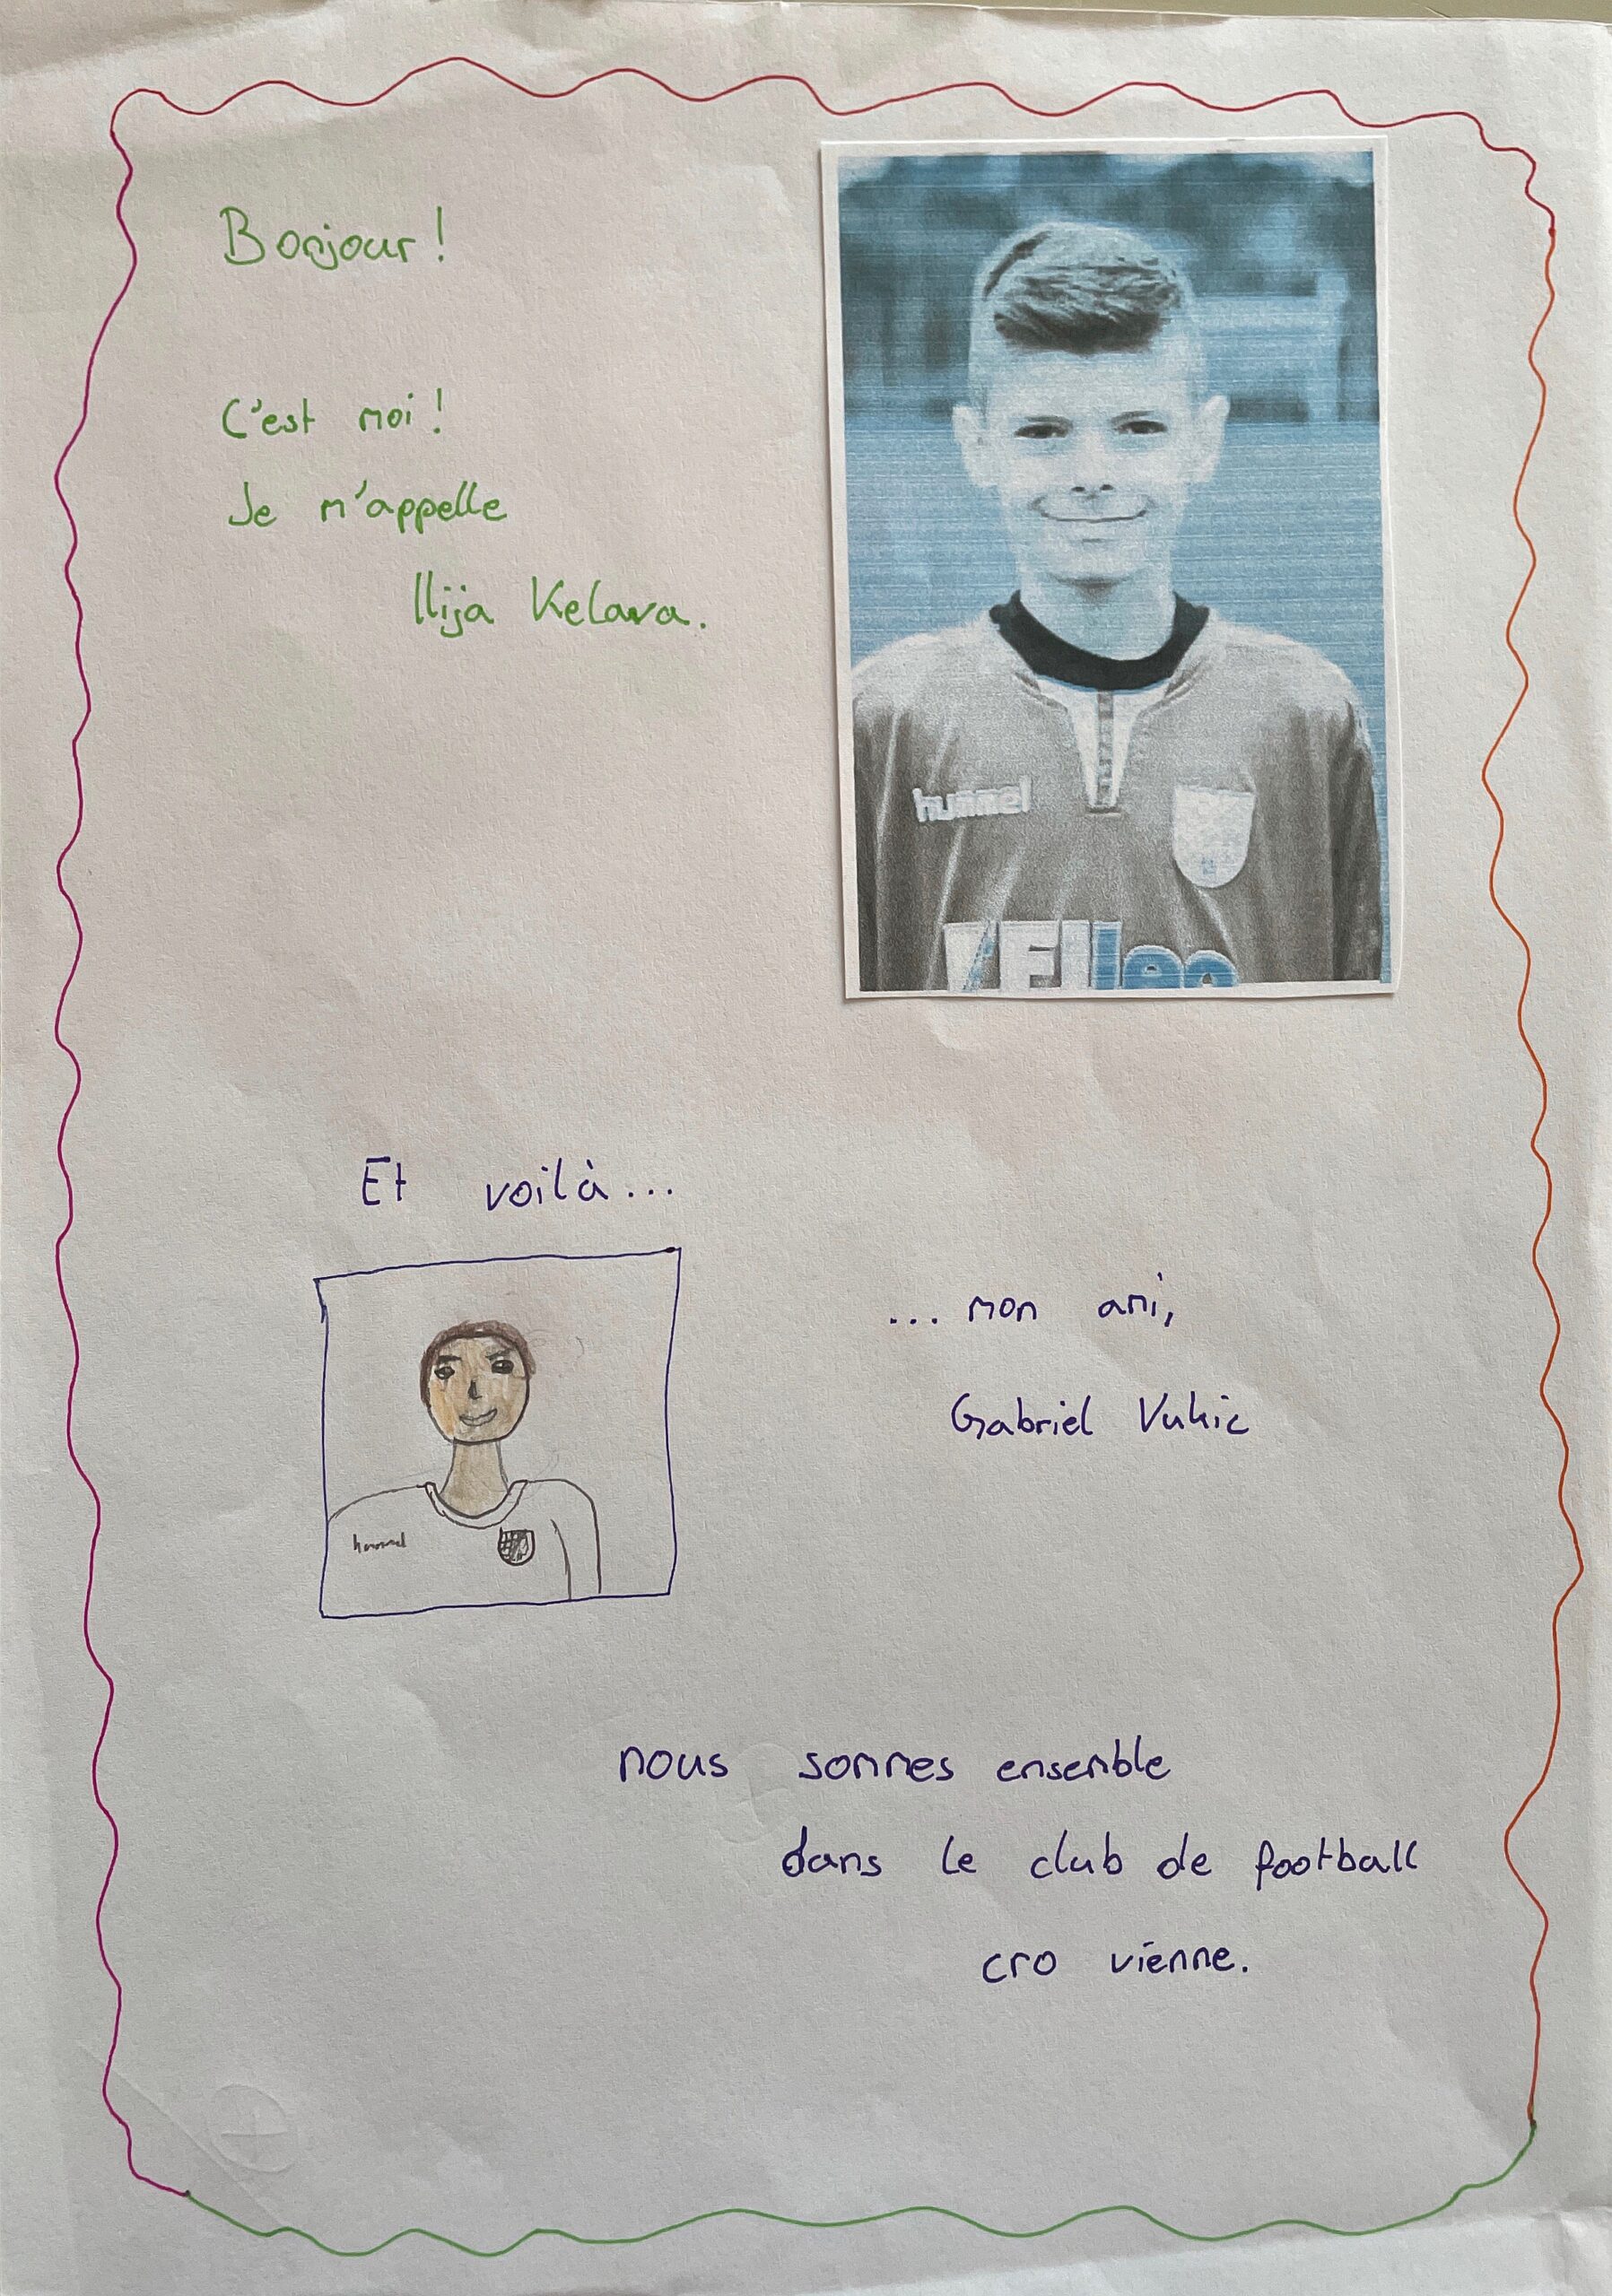 Bonjour!
C'est moi!
Je m'appelle
Ilija Kelava.
hummel
Et voilà...
... mon ami,
Gabriel Vukic
hummel
nous sommes ensemble
dans le club de football
cro vienne.